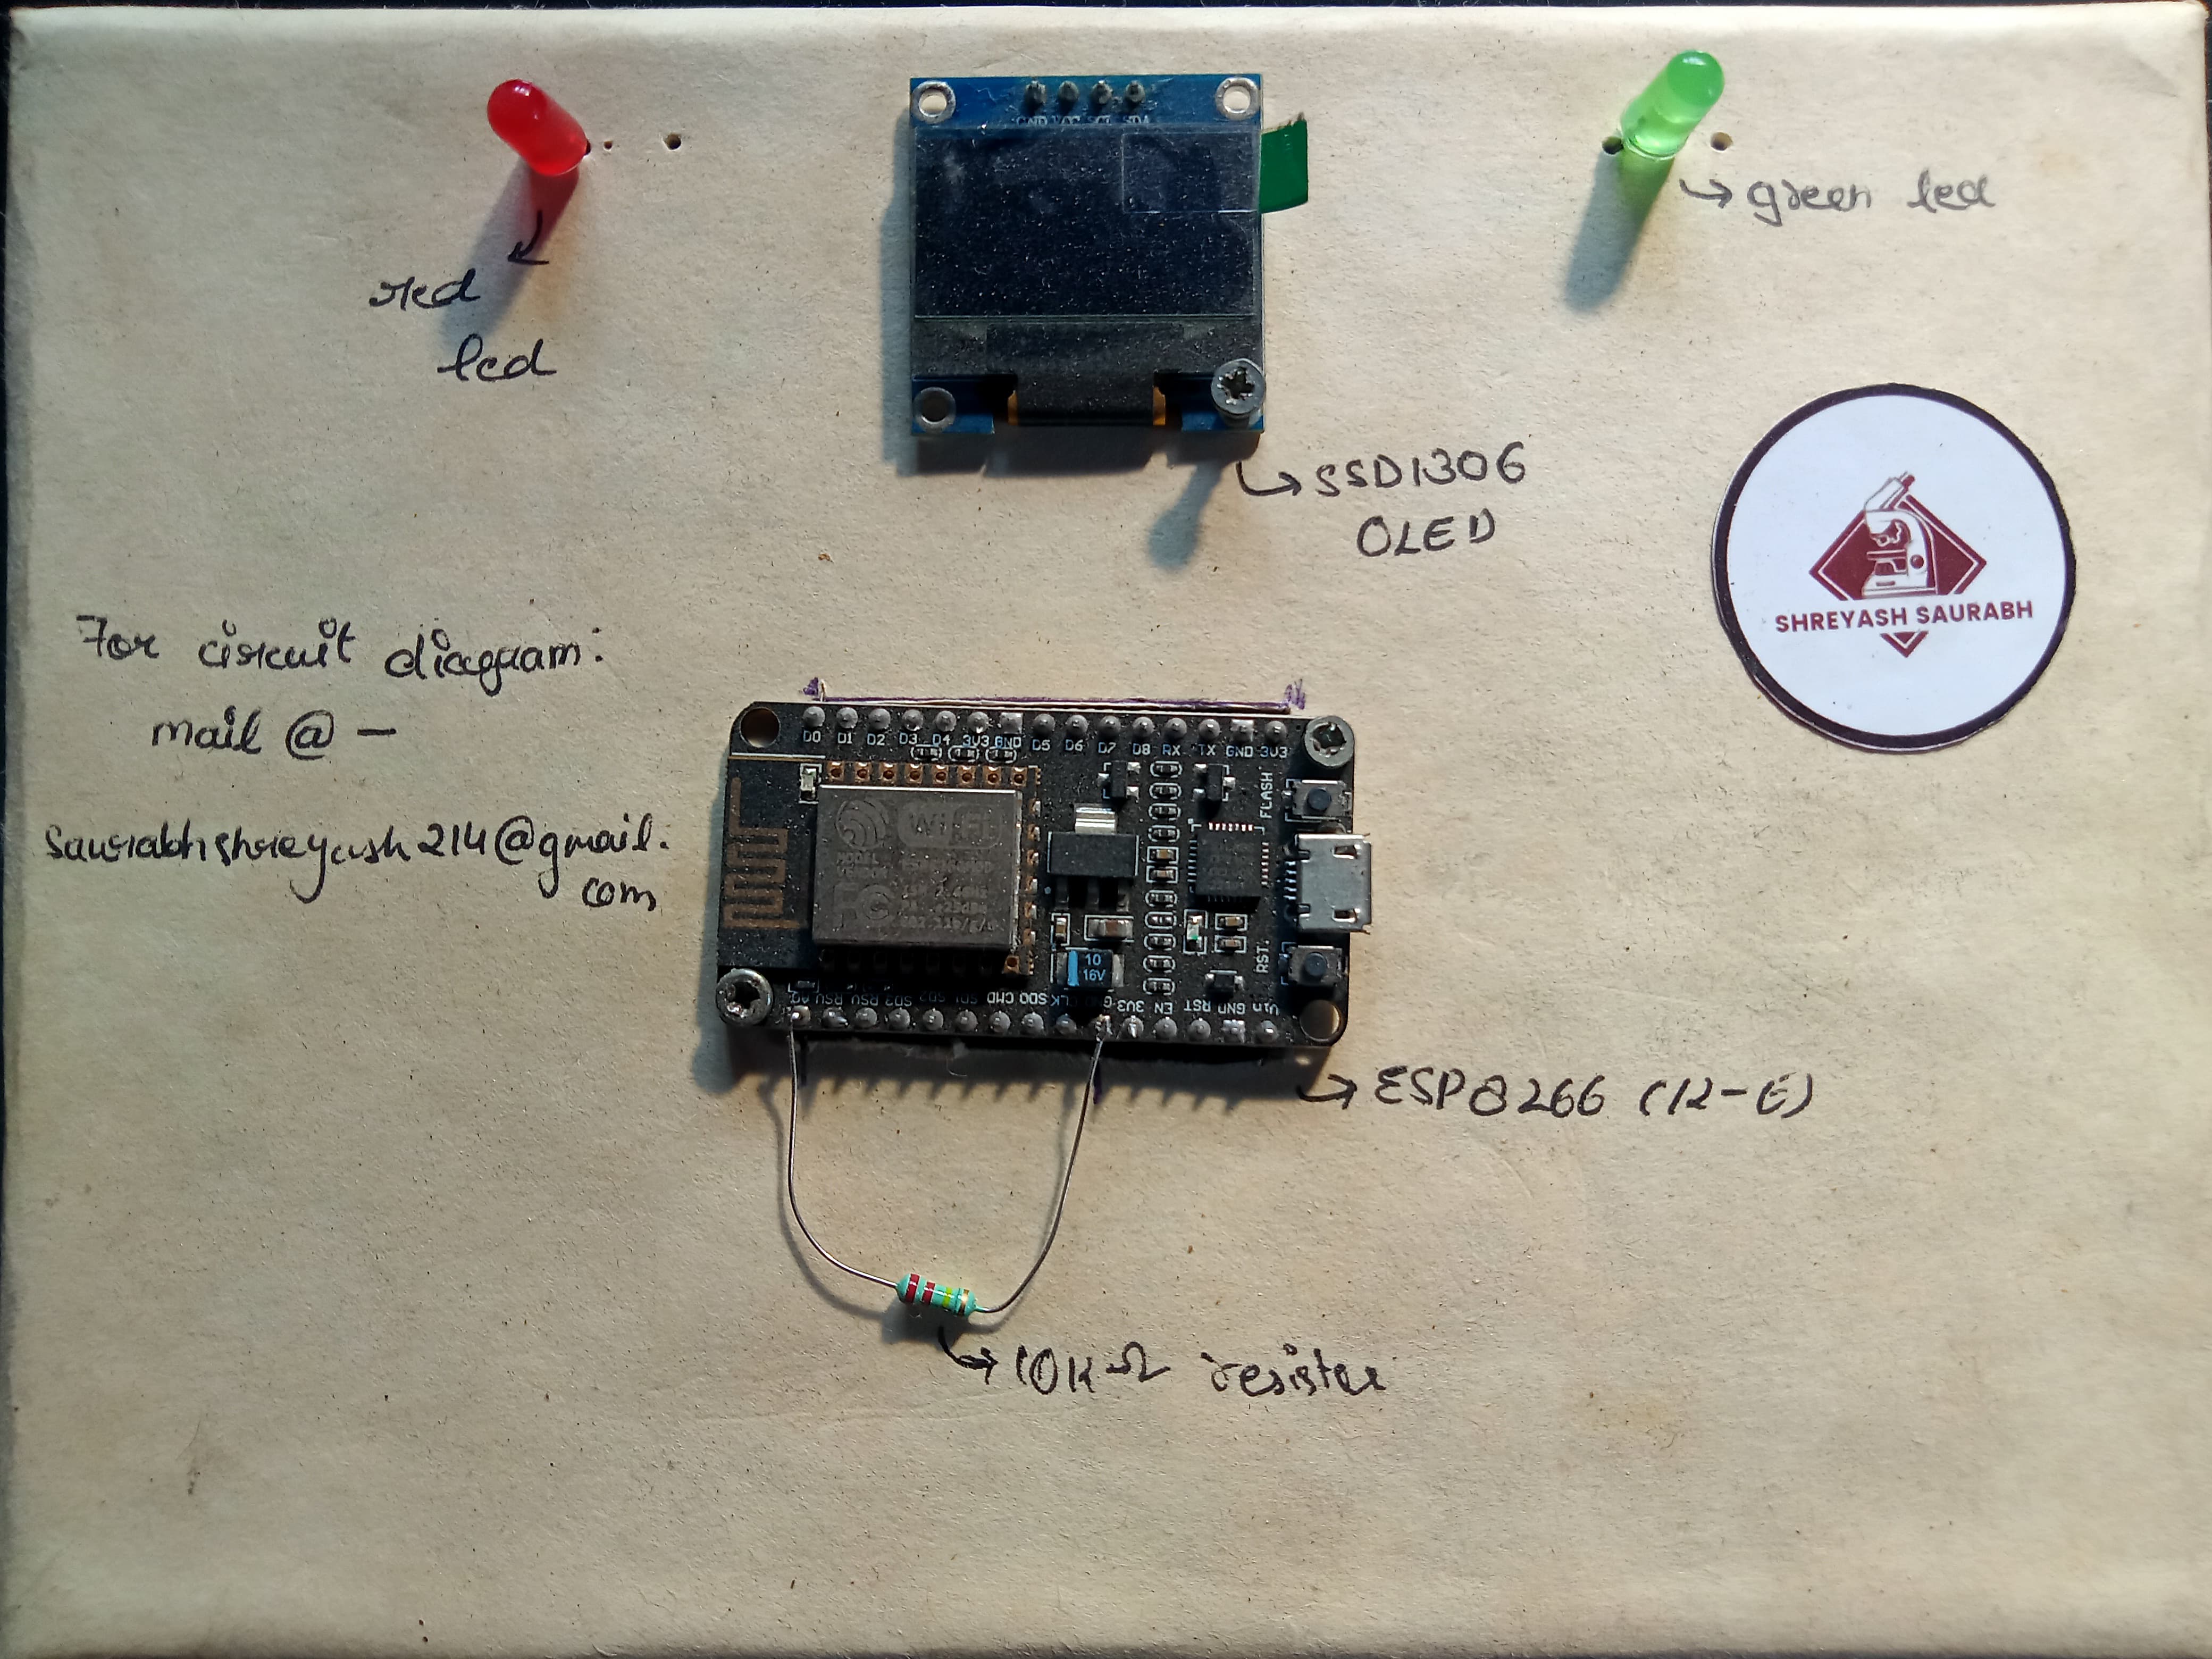 GND VCC SCL SDA
red
led
green led
SSD1306
OLED
SHREYASH SAURABH
For circuit diagram:
mail @ –
saurabhshreyash214@gmail.
com
D0 D1 D2 D3 D4 3V3 GND D5 D6 D7 D8 RX TX GND 3V3
FLASH
WiFi
MODEL
FC
10
16V
RST
A0 RSV RSV SD3 SD2 SD1 CMD SD0 CLK GND 3V3 EN RST GND Vin
ESP8266 (12-E)
10KΩ resister